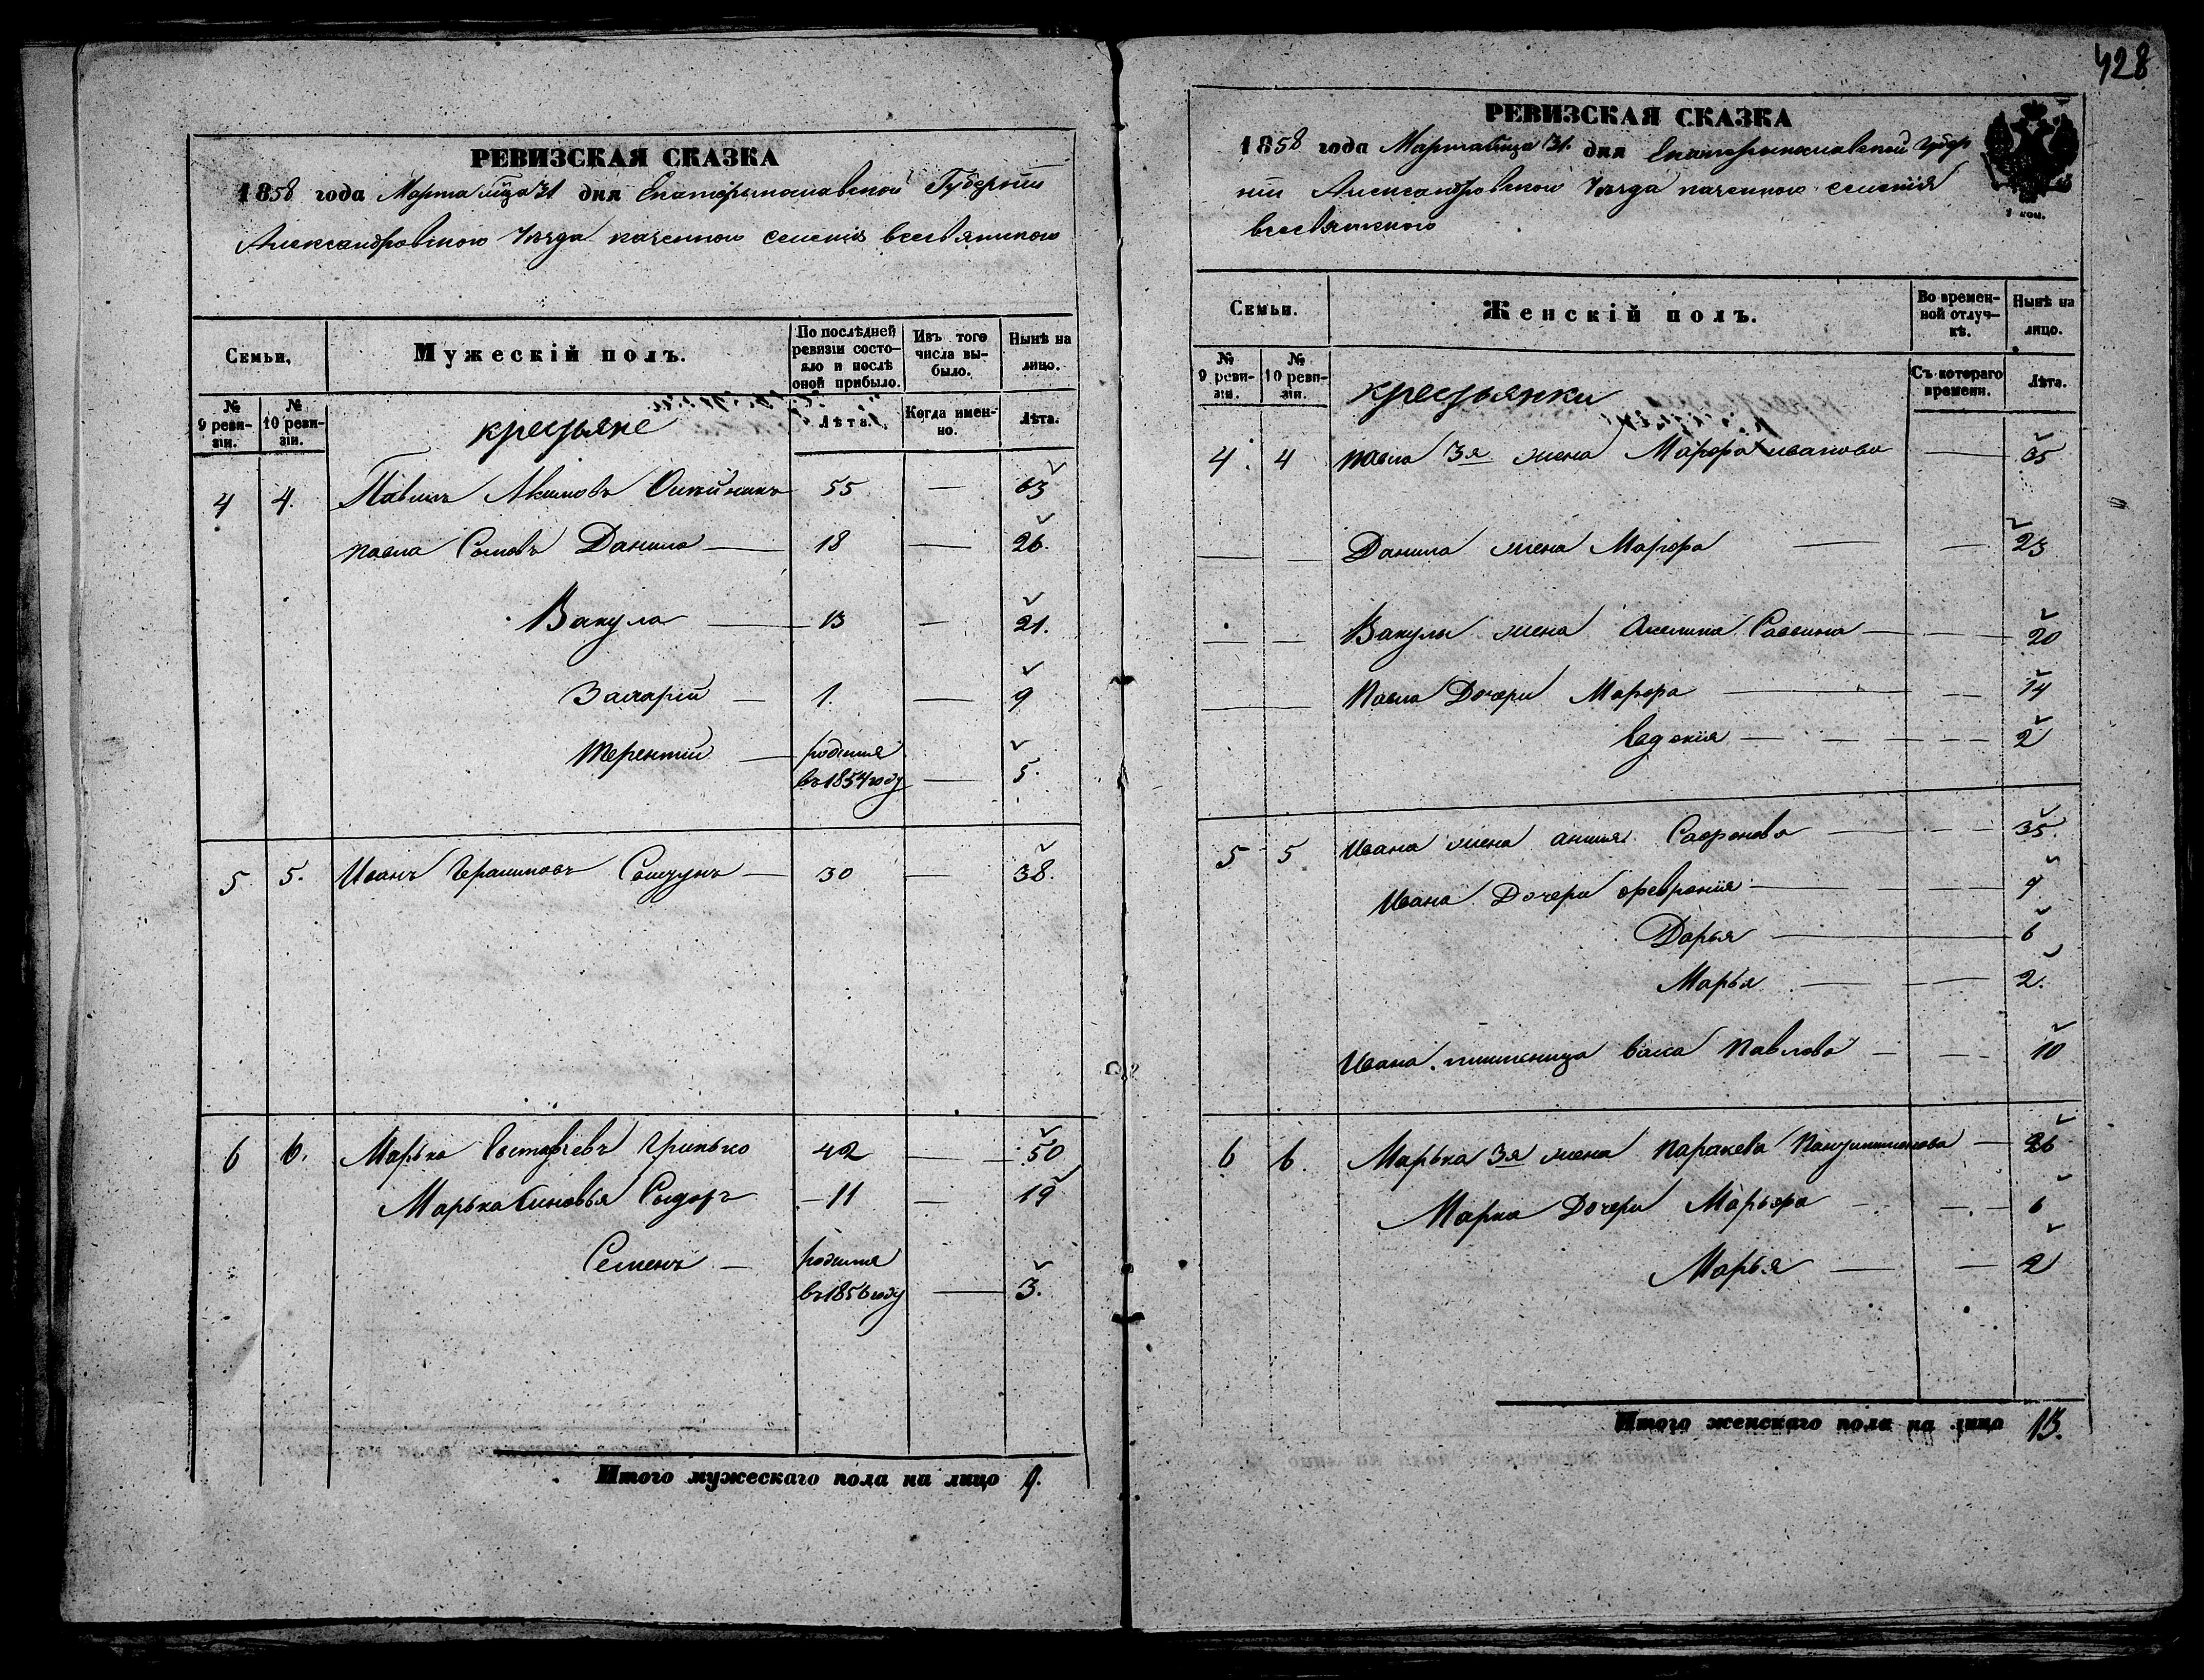 428
РЕВИЗСКАЯ СКАЗКА
1858 года Марта мца 31 дня Екатеринославской Губернии
Александровского Уезда казенного селения всесвятского
Семьи,
Мужескій полъ.
По послѣдней ревизіи состояло и послѣ оной прибыло.
Изъ того числа выбыло.
Нынѣ на лицо.
№ 9 ревизіи.
№ 10 ревизіи.
крестьяне
Лѣта.
Когда именно.
Лѣта.
4 4. Павелъ Акимовъ Олейникъ 55 — 63
павла Сыновъ Данило — 18 — 26.
Вакула — 13 — 21.
Захарій — 1. — 9
терентій — родился
въ 1854 году — 5.
5 5. Иванъ Герасимовъ — 30 — 38.
6 6. Марька Евстафіевъ Гринько 42 — 50
Марька Синовья Сыдоръ — 11 — 19
Семенъ — родился
въ 1856 году — 3.
Итого мужескаго пола на лицо 9.
РЕВИЗСКАЯ СКАЗКА
1858 года Марта мца 31. дня Екатеринославской Губер
ніи Александровского Уезда казенного селения
всесвятского
1 коп.
Семьи.
Женскій полъ.
Во временной отлучкѣ.
Нынѣ на лицо.
№ 9 ревизіи.
№ 10 ревизіи.
крестьянки
Съ котораго времени.
Лѣта.
4. 4 павла 3я жена Марфа иванова — 35
Данила жена Марфа — — 23
Вакулы жена Акелина Саввина — — 20
Павла Дочери Марфа — — 14
Евдокія — — 2
5 5 Ивана жена анна Сафронова — — 35
Ивана Дочери февронія — — 9
Дарья — 6
Марья — — 2.
Ивана питомица васа Павлова — — 10
6 6. Марька 3я жена Паракева Пантилимонова — 26
Марка Дочери Марьфа — — 6
Марья — — 2
Итого женскаго пола на лицо 13.